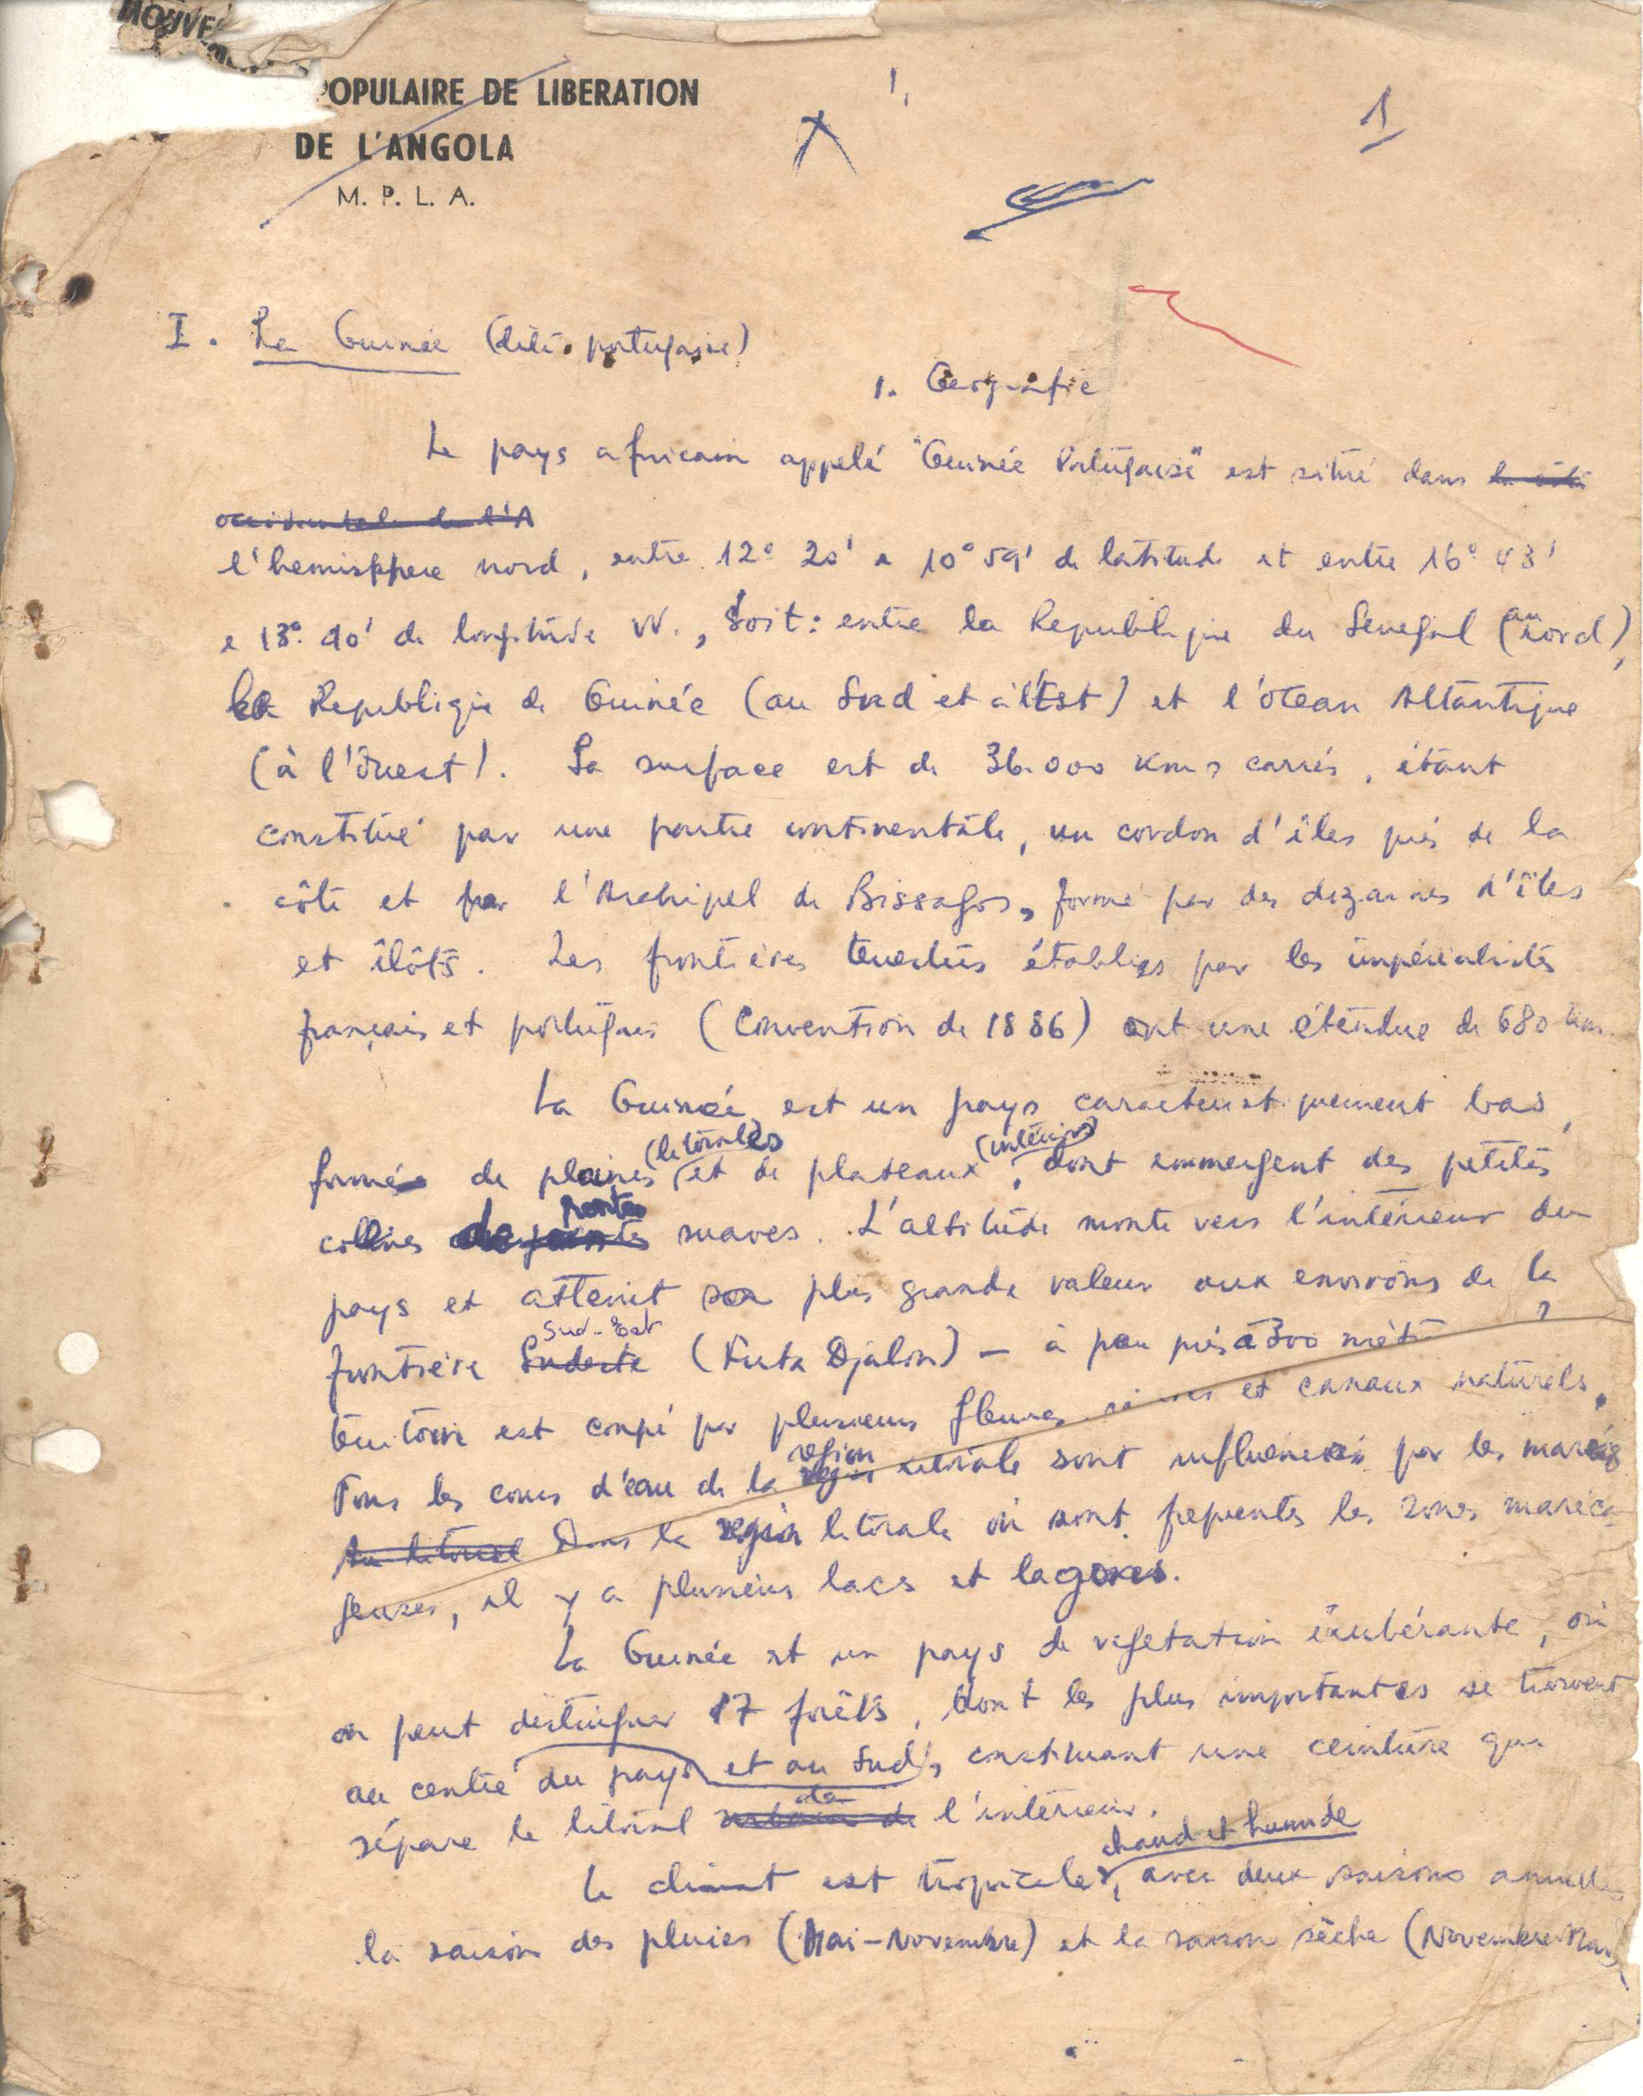 MOUVE
POPULAIRE DE LIBERATION
DE L'ANGOLA
M. P. L. A.
1
I. La Guinée (dite portugaise)
1. Geografie
Le pays africain appelé "Guinée Portugaise" est situé dans la côte
occidentale de l'A
l'hemisphere nord, entre 12° 20' e 10° 59' de latitude et entre 16° 43'
e 13° 90' de longitude W., soit: entre la Republique du Senegal (au nord),
la Republique de Guinée (au Sud et à l'Est) et l'Ocean Altantique
(à l'Ouest). La surface est de 36.000 Kms carrés, étant
constitué par une partie continentale, un cordon d'îles près de la
côte et par l'Archipel de Bissagos, formé par des dizaines d'îles
et îlôts. Les frontières terrestres établies par les impérialistes
français et portugais (Convention de 1886) ont une étendue de 680 km.
La Guinée est un pays caracteristiquement bas,
formé de plaines (litorales) et de plateaux (intérior), dont emmergent des petites
collines pentes suaves. L'altitude monte vers l'intérieur du
pays et atteint sa plus grande valeur aux environs de la
frontière Sud-Est (Futa Djalon) — à peu près à 300 mèt
territoire est coupé par plusieurs fleuves et canaux naturels.
Tous les cours d'eau de la region litorale sont influencés par les marées
du litoral Dans la region litorale où sont frequentes les zones maréca
geuses, il y a plusieurs lacs et lagoxes.
La Guinée est un pays de vegetation exubérante, où
on peut distinguer 17 forêts, dont les plus importantes se trouvent
au centre du pays et au Sud, constituant une ceinture qui
sépare le litoral de l'intérieur.
Le climat est tropicale, chaud et humide, avec deux saisons annuelles
la saison des pluies (Mai-Novembre) et la saison sèche (Novembre-Mai)